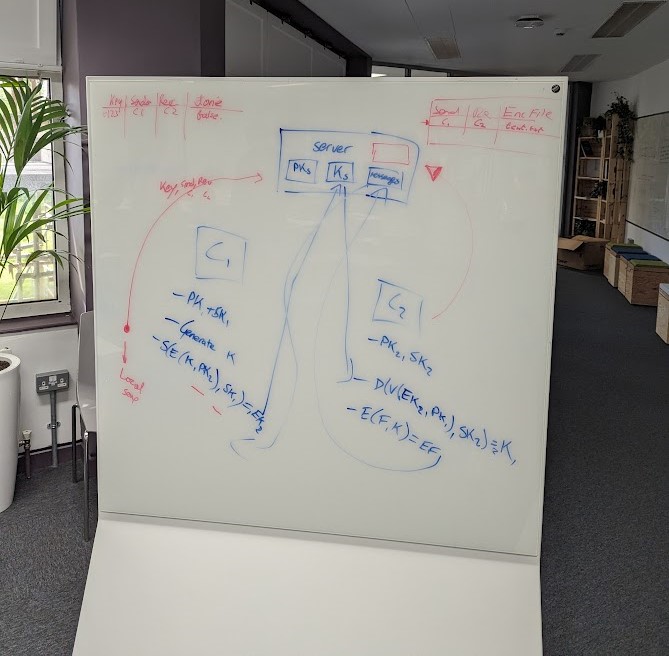 Key Sender Rec Done
123 C1 C2 false.
Send Rec Enc File
C1 C2
server
PKs Ks messages
Key, Send, Rec
C1 C2
C1
- PK1 + SK1
- Generate K
- S(E(K, PK2), SK1) = EK2
Local
C2
- PK2, SK2
- D(V(EK2, PK1), SK2) = K
- E(F, K) = EF